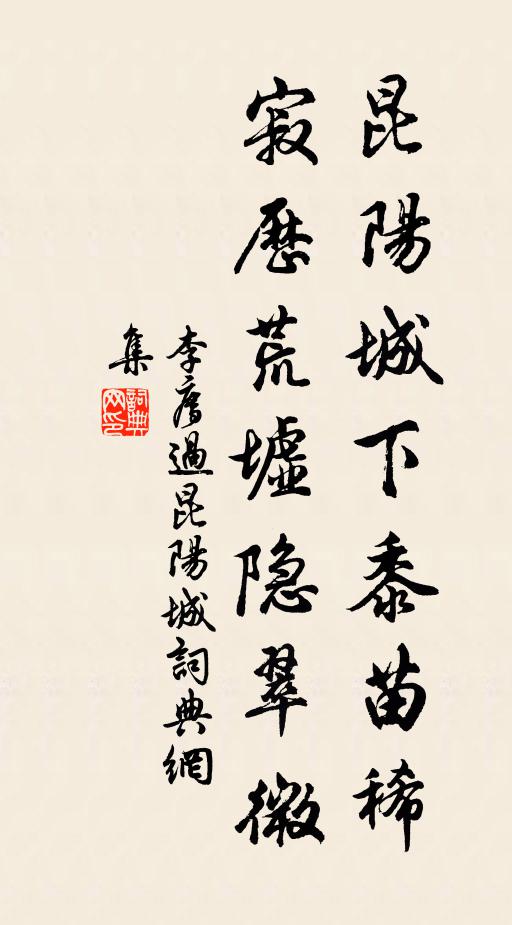 昆陽城下黍苗稀
寂歷荒墟隐翠微
李廌過昆陽城詞典網
集
詞典網印